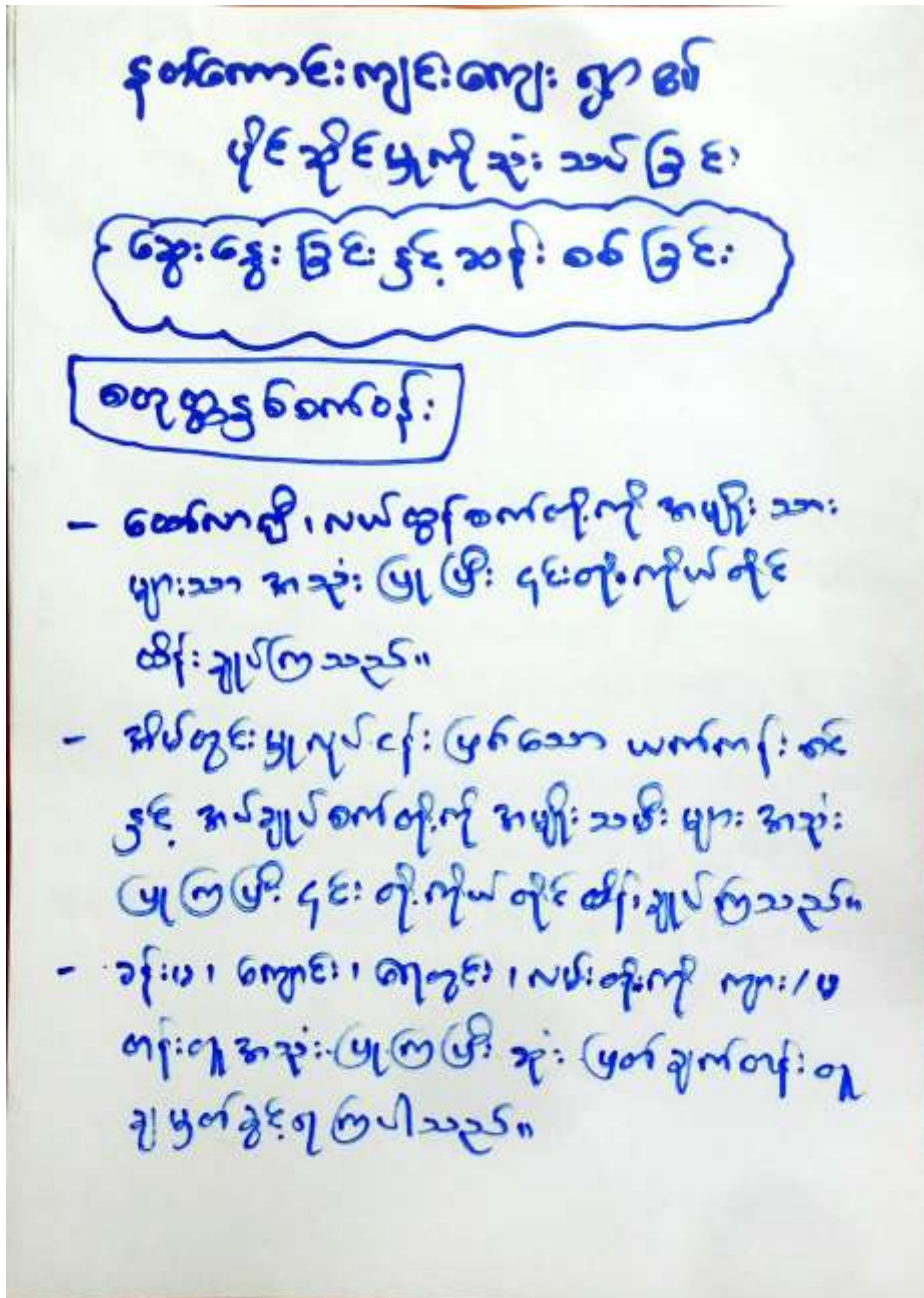 နတ်ကောင်းကျင်းကျေး ရွာ ၏
ပိုင်ဆိုင်မှုကို သုံး သပ် ခြင်း
ဆွေးနွေး ခြင်း နှင့် ဆန်း စစ် ခြင်း
စတုတ္ထနှစ်စက်ဝန်း
- ထော်လာဂျီ၊ လယ်ထွန်စက်တို့ကို အမျိုး သား
များသာ အသုံး ပြု ပြီး ၎င်းတို့ကိုယ်တိုင်
ထိန်း ချုပ်ကြသည်။
- အိမ်တွင်းမှုလုပ်ငန်း ဖြစ်သော ယက်ကန်း စင်
နှင့် အပ်ချုပ်စက်တို့ကို အမျိုး သမီး များ အသုံး
ပြုကြပြီး ၎င်း တို့ကိုယ်တိုင် ထိန်းချုပ် ကြသည်။
- ခန်းမ၊ ကျောင်း၊ ရေတွင်း၊ လမ်းတို့ကို ကျား/မ
တန်းတူ အသုံး ပြုကြပြီး ဆုံး ဖြတ်ချက်တန်း တူ
ချမှတ်ခွင့်ရ ကြပါသည်။